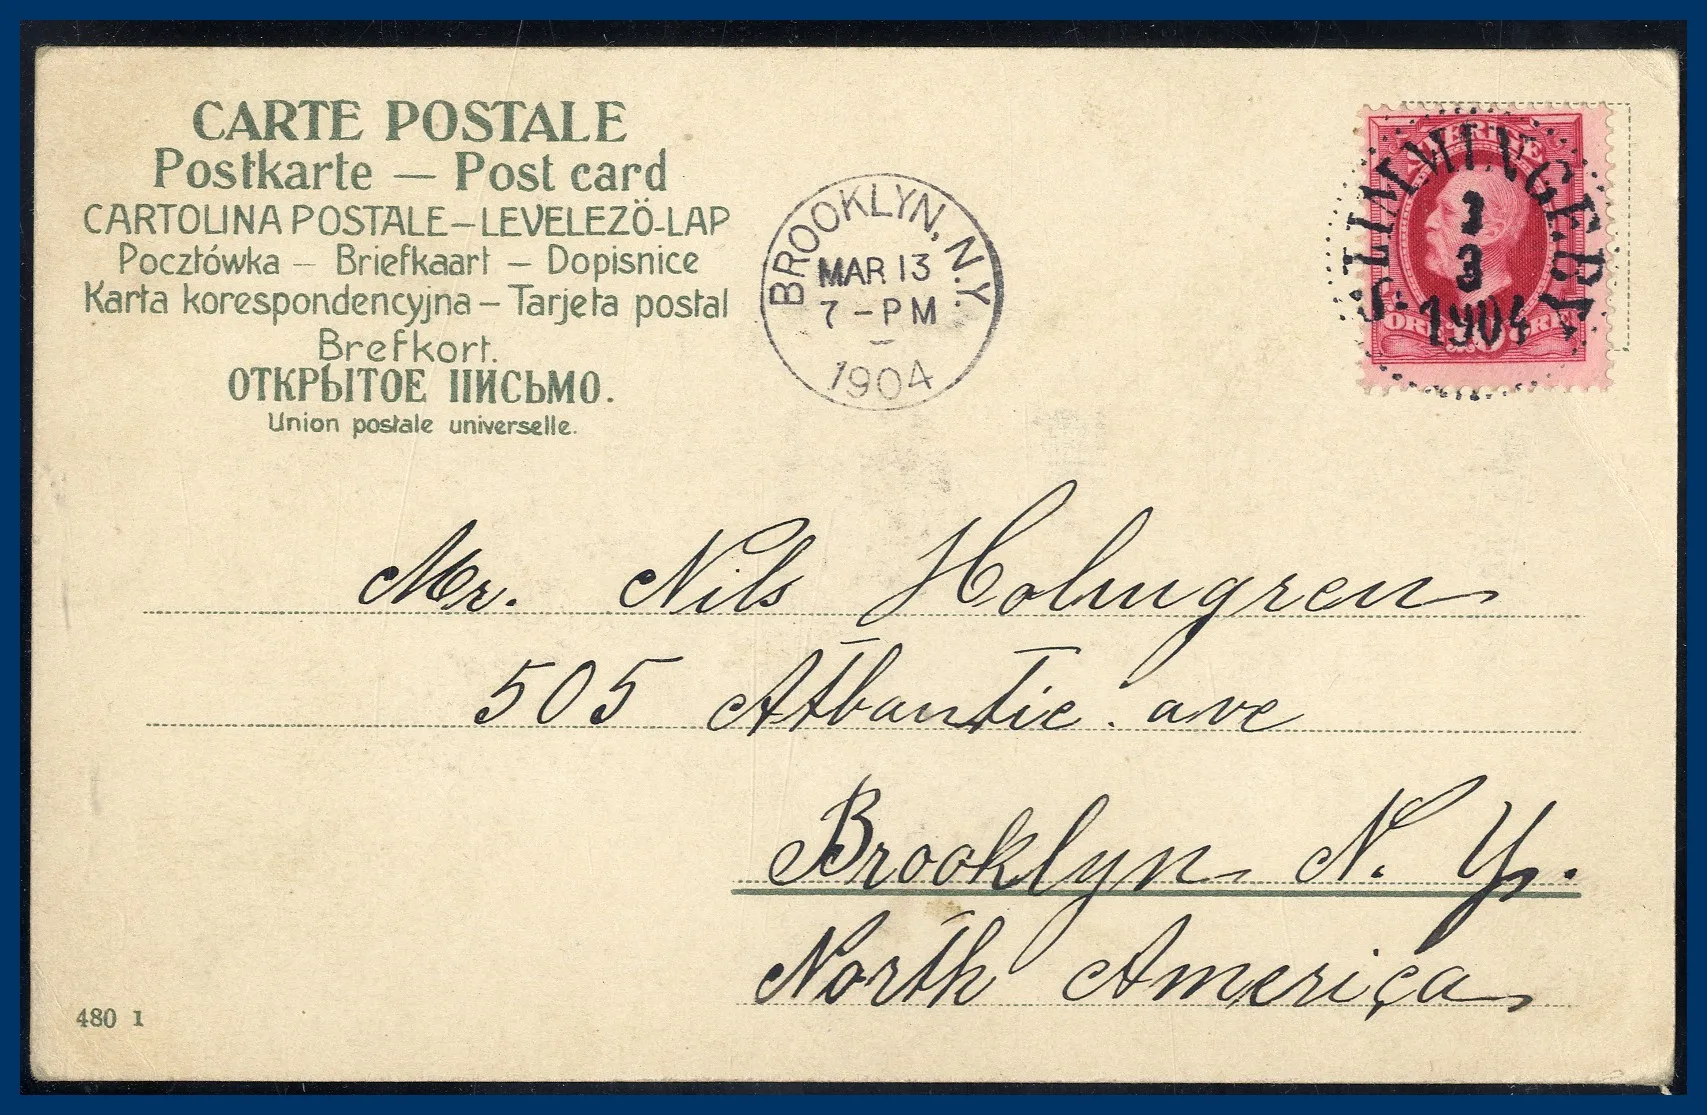 CARTE POSTALE
Postkarte — Post card
CARTOLINA POSTALE — LEVELEZÖ-LAP
Pocztówka — Briefkaart — Dopisnice
Karta korespondencyjna — Tarjeta postal
Brefkort.
ОТКРЫТОЕ ПИСЬМО.
Union postale universelle.
BROOKLYN, N.Y.
MAR 13
7 - PM
1904
SVERIGE
S. LIMMINGEBY
3
1904
ÖRE ÖRE
Mr. Nils Holmgren
505 Atlantic. ave
Brooklyn N. Y.
North America
480 1